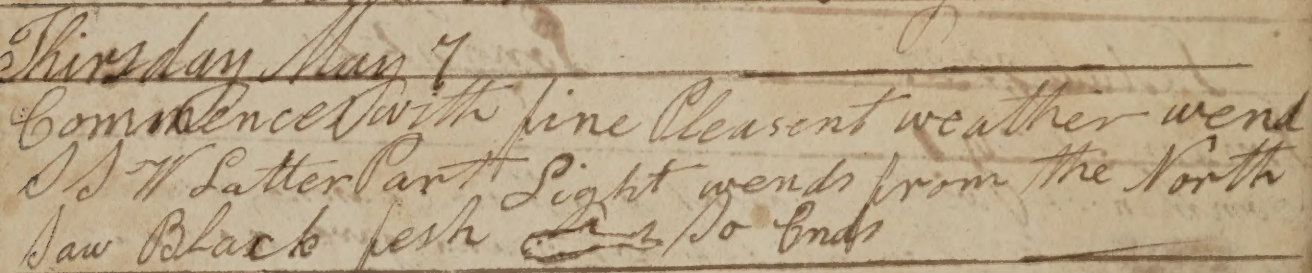 Thirsday May 7
Commences with fine Pleasent weather wend
S S W Latter Part Light wends from the North
Saw Black fesh So Ends